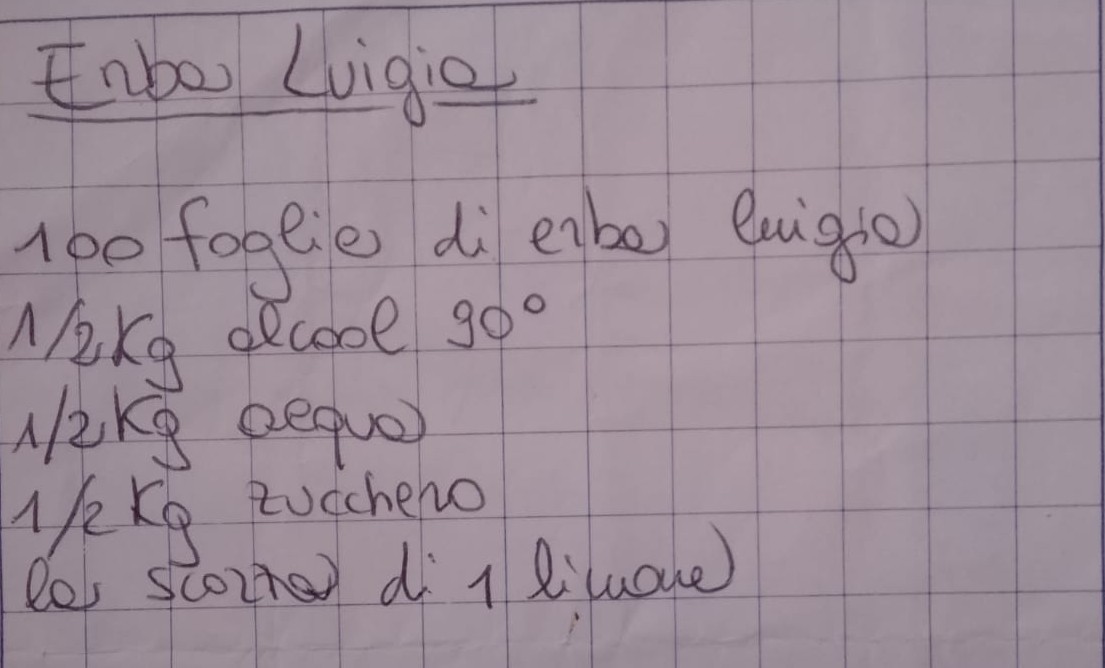 Erba Luigia
100 foglie di erba luigia
1/2 Kg alcool 90°
1/2 Kg acqua
1/2 Kg zucchero
la scorza di 1 limone